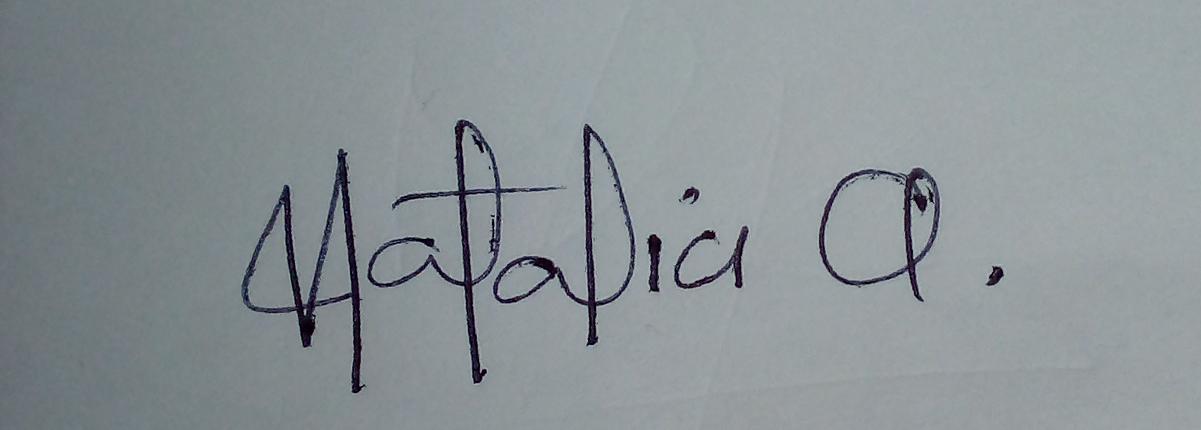 Natalia Q.